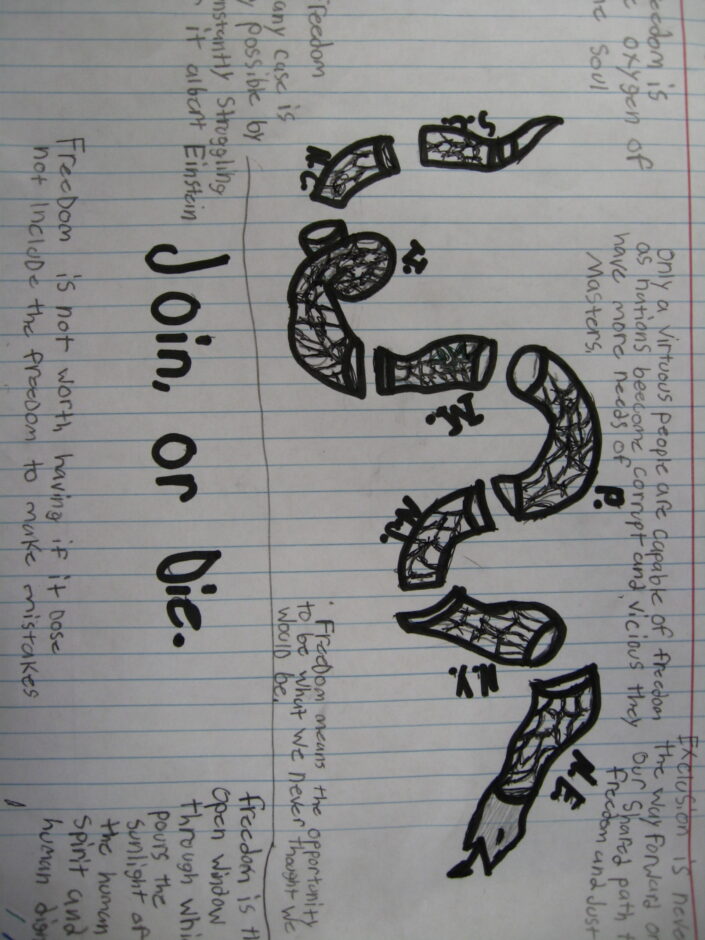 eedom is
e oxygen of
he soul
Only a virtuous people are capable of freedom
as nations beecome corrupt and vicious they
have more needs of
Masters.
Exclusion is neve
the way forward on
our shared path t
freedom and Just
S.C.
N.C.
V.
M.
P.
N.J.
N.Y.
N.E.
Freedom
any case is
y possible by
nstantly struggling
it albert Einstein
"Freedom means the opportunity
to be what we never thought we
would be.
freedom is th
open window
through whi
pours the
sunlight of
the human
Spirit and
human dign
Join, or Die.
Freedom is not worth having if it Dose
not include the freedom to make mistakes